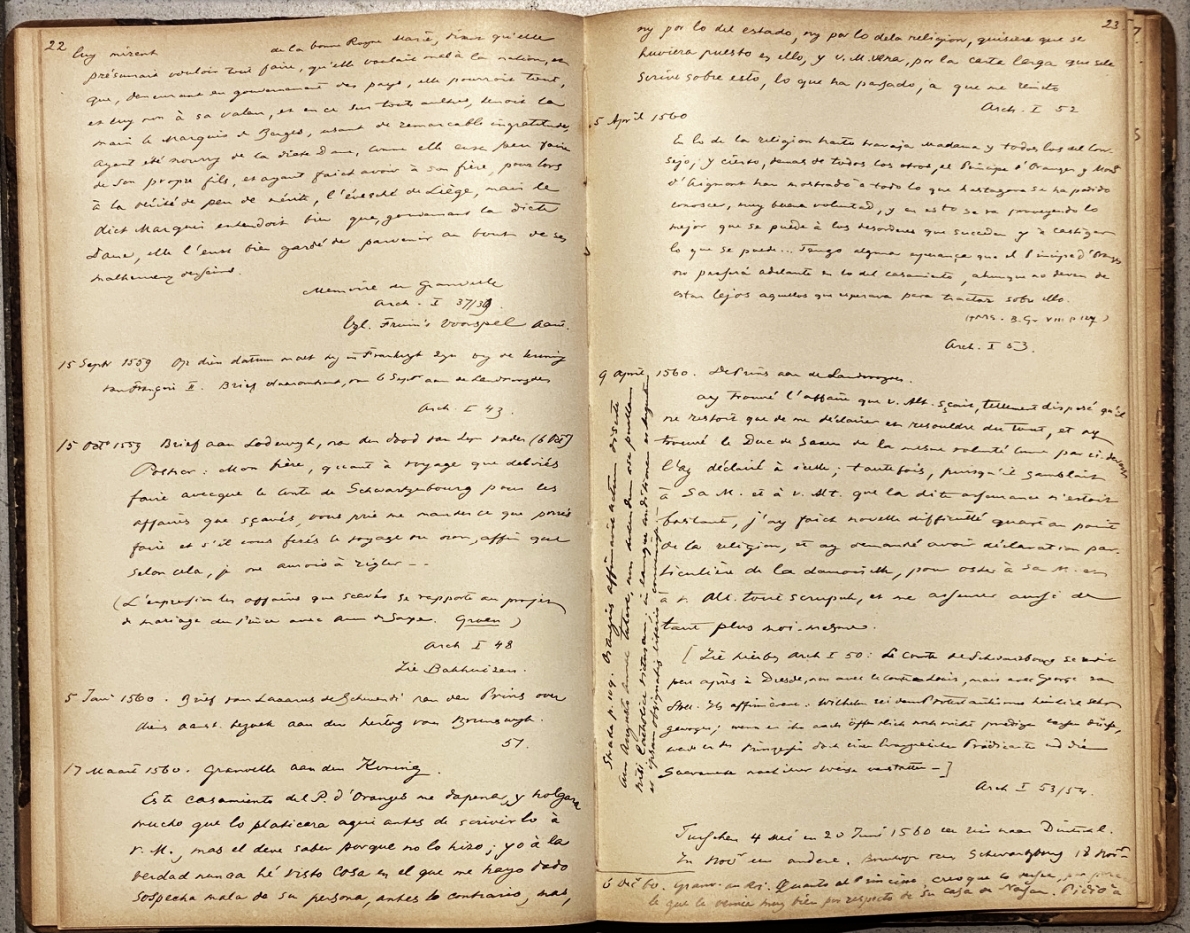 22
luy mirent de la bonne Royne Marie, disant qu'elle
présumait vouloir tout faire, qu'elle voulait mal à la nation, et
que, demeurant en gouvernement des pays, elle pourroit tout,
et luy non à sa valeur, et en ce sur touts aultres, tenoit la
main le Marquis de Berges, usant de remarcable ingratitude,
ayant été nourry de la dicte Dame, comme elle eust peu faire
de son propre fils, et ayant faict avoir à son frère, pour lors
à la vérité de peu de mérite, l'évesché de Liège, mais le
dict Marquis entendoit bien que, gouvernant la dicte
Dame, elle l'eust bien gardé de parvenir au bout de ses
malheureux desseins.
Memoire de Granvelle
Arch. I 37/39.
Vgl. Fruin's Voorspel
15 Sept 1559 Op dien datum moet hij in Frankrijk zijn bij de kroning
van François II. Brief van 6 Sept aan de Landvoogdes
Arch. I 43.
15 Oct 1559 Brief aan Lodewyk, na den dood van zijn vader (6 Oct)
Postscr: Mon frère, quant à voyage que debviés
faire avecque le Conte de Schwartzebourg pour les
affaires que sçavés, vous prie me mander ce que porrés
faire et s'il vous ferés le voyage ou non, affin que
selon cela, je me
(L'expression les affaires que scavés se rapporte au projet
de mariage du Prince avec Anne de Saxe. Groen)
Arch I 48
Zie Bakhuizen.
5 Jan 1560. Brief van Lazarus de Schwendi aan den Prins over
diens aanst. bezoek aan den hertog van Brunswyk.
51.
17 Maart 1560. Granvelle aan den Koning.
Este casamiento del P. d'Oranges me da pena, y holgara
mucho que lo platicera aqui antes de scrivirlo à
V. M., mas el deve saber porque no lo hizo; yo à la
verdad nunca hé visto cosa en el que me haya dado
sospecha mala de su persona, antes lo contrario, mas,
23
ny por lo del estado, ny por lo de la religion, quisiera que se
huviera puesto en ello, y V. M. vera, por la carta larga que se le
scrive sobre esto, lo que ha passado, a que me remito
Arch. I 52
5 April 1560
En lo de la religion harto travaja Madama y todos los del Con-
sejo; y cierto, demas de todos los otros, el Principe d'Oranges y Mons
d'Aigmont han mostrado a todo lo que hastagora se ha podido
conoscer, muy buena voluntad, y en esto se va proveyendo lo
mejor que se puede à los desordenes que succeden y à castigar
lo que se puede... Tengo alguna esperança que el Principe d'Oranges
no passerá adelante en lo del casamiento, ahunque no deven de
estar lejos aquellos que esperava para tractar sobre ello.
Arch. I 53.
9 April 1560. De Prins aan de Landvoogdes.
ay trouvé l'affaire que V. Alt. sçait, tellement disposé qu'il
ne restoit que de me déclairer en resouldre du tout, et ay
trouvé le Duc de Saxen de la mesme volunté
l'ay déclairé à icelle; toutefois, puisqu'il sembloit
à Sa M. et à V. Alt. que la dite asseurance n'estoit
bastante, j'ay faict nouvelle difficulté quant au point
de la religion, et ay demandé avoir déclaration par-
ticulière de la damoiselle, pour oster à Sa M. et
à V. Alt. tout scrupule, et me asseurer aussi de
tant plus moi-mesme.
[Zie hierbij Arch I 50: Le Conte de Schwarzbourg se rendit
peu après à Dresde, non avec le Comte Louis, mais avec George van
Holl. Ils affirmèrent: Wilhelm sei dem Protestantismus heimlich sehr
geneigt; wenn er ihn auch öffentlich noch nicht predigen lassen dürfe,
werde er der Prinzessin doch einen Evangelischen Prädicanten und die
Sacramente nach ihrer Weise verstatten -]
Arch I 53/54.
Tusschen 4 Mei en 20 Juni 1560
In Nov een andere. Schwartzburg 18 Nov
6 Dec 60. Granv. an Roi. Quanto al Principe, creo que lo
le que le vernie muy bien por respecto de su casa
Strada p. 109.